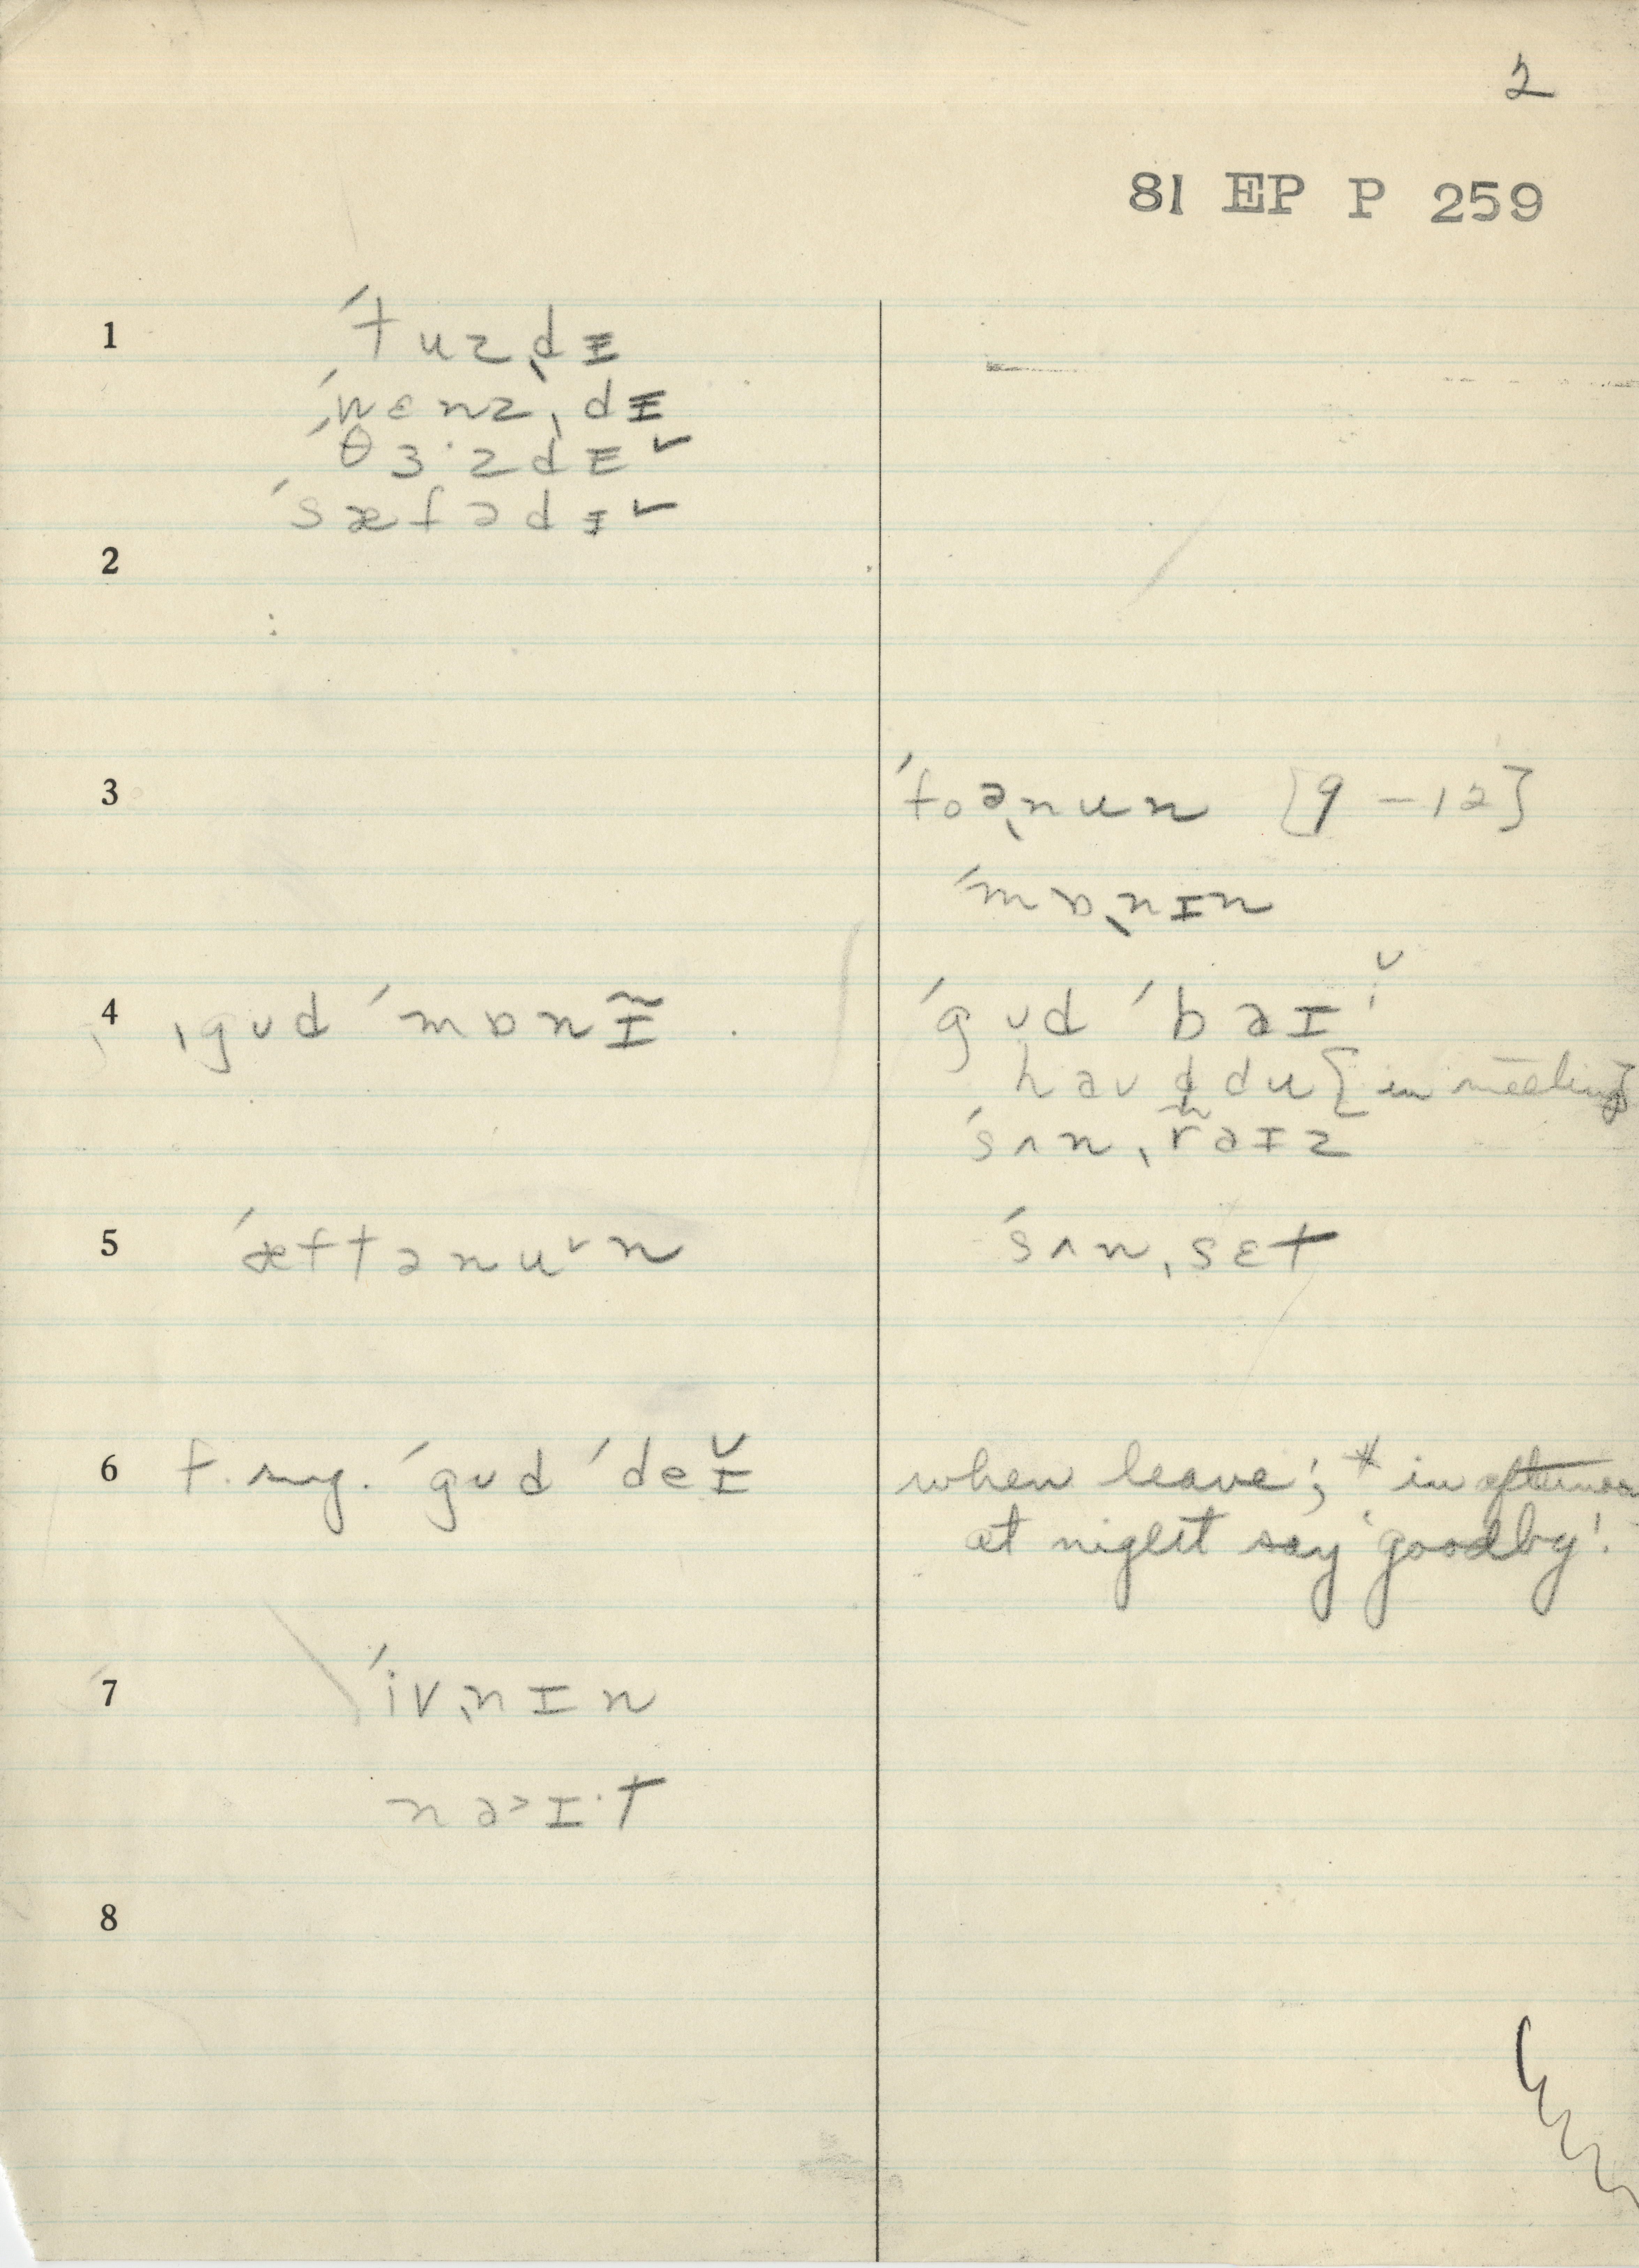 2
81 EP P 259
1 ˊtuzˎdɪ
ˊwɛnzˎdɪ
ˊθɜ·zdɪ ˇ
ˊsæfədɪ ˇ
2
3 ˊfoəˎnun [9 – 12]
ˊmɒˎnɪn
4 ˌgʊd ˊmɒnɪ̃ ˊgʊd ˊbaɪˇ
haʊ d du [in meeting]
ˊsʌnˎraɪz
5 ˊæftənuˇn ˊsʌnˎsɛt
6 f. ˊgʊd ˊdeɪ̆ when leave; * in afternoon
at night say 'goodby'.
7 ˊivˎnɪn
na>ɪ·t
8